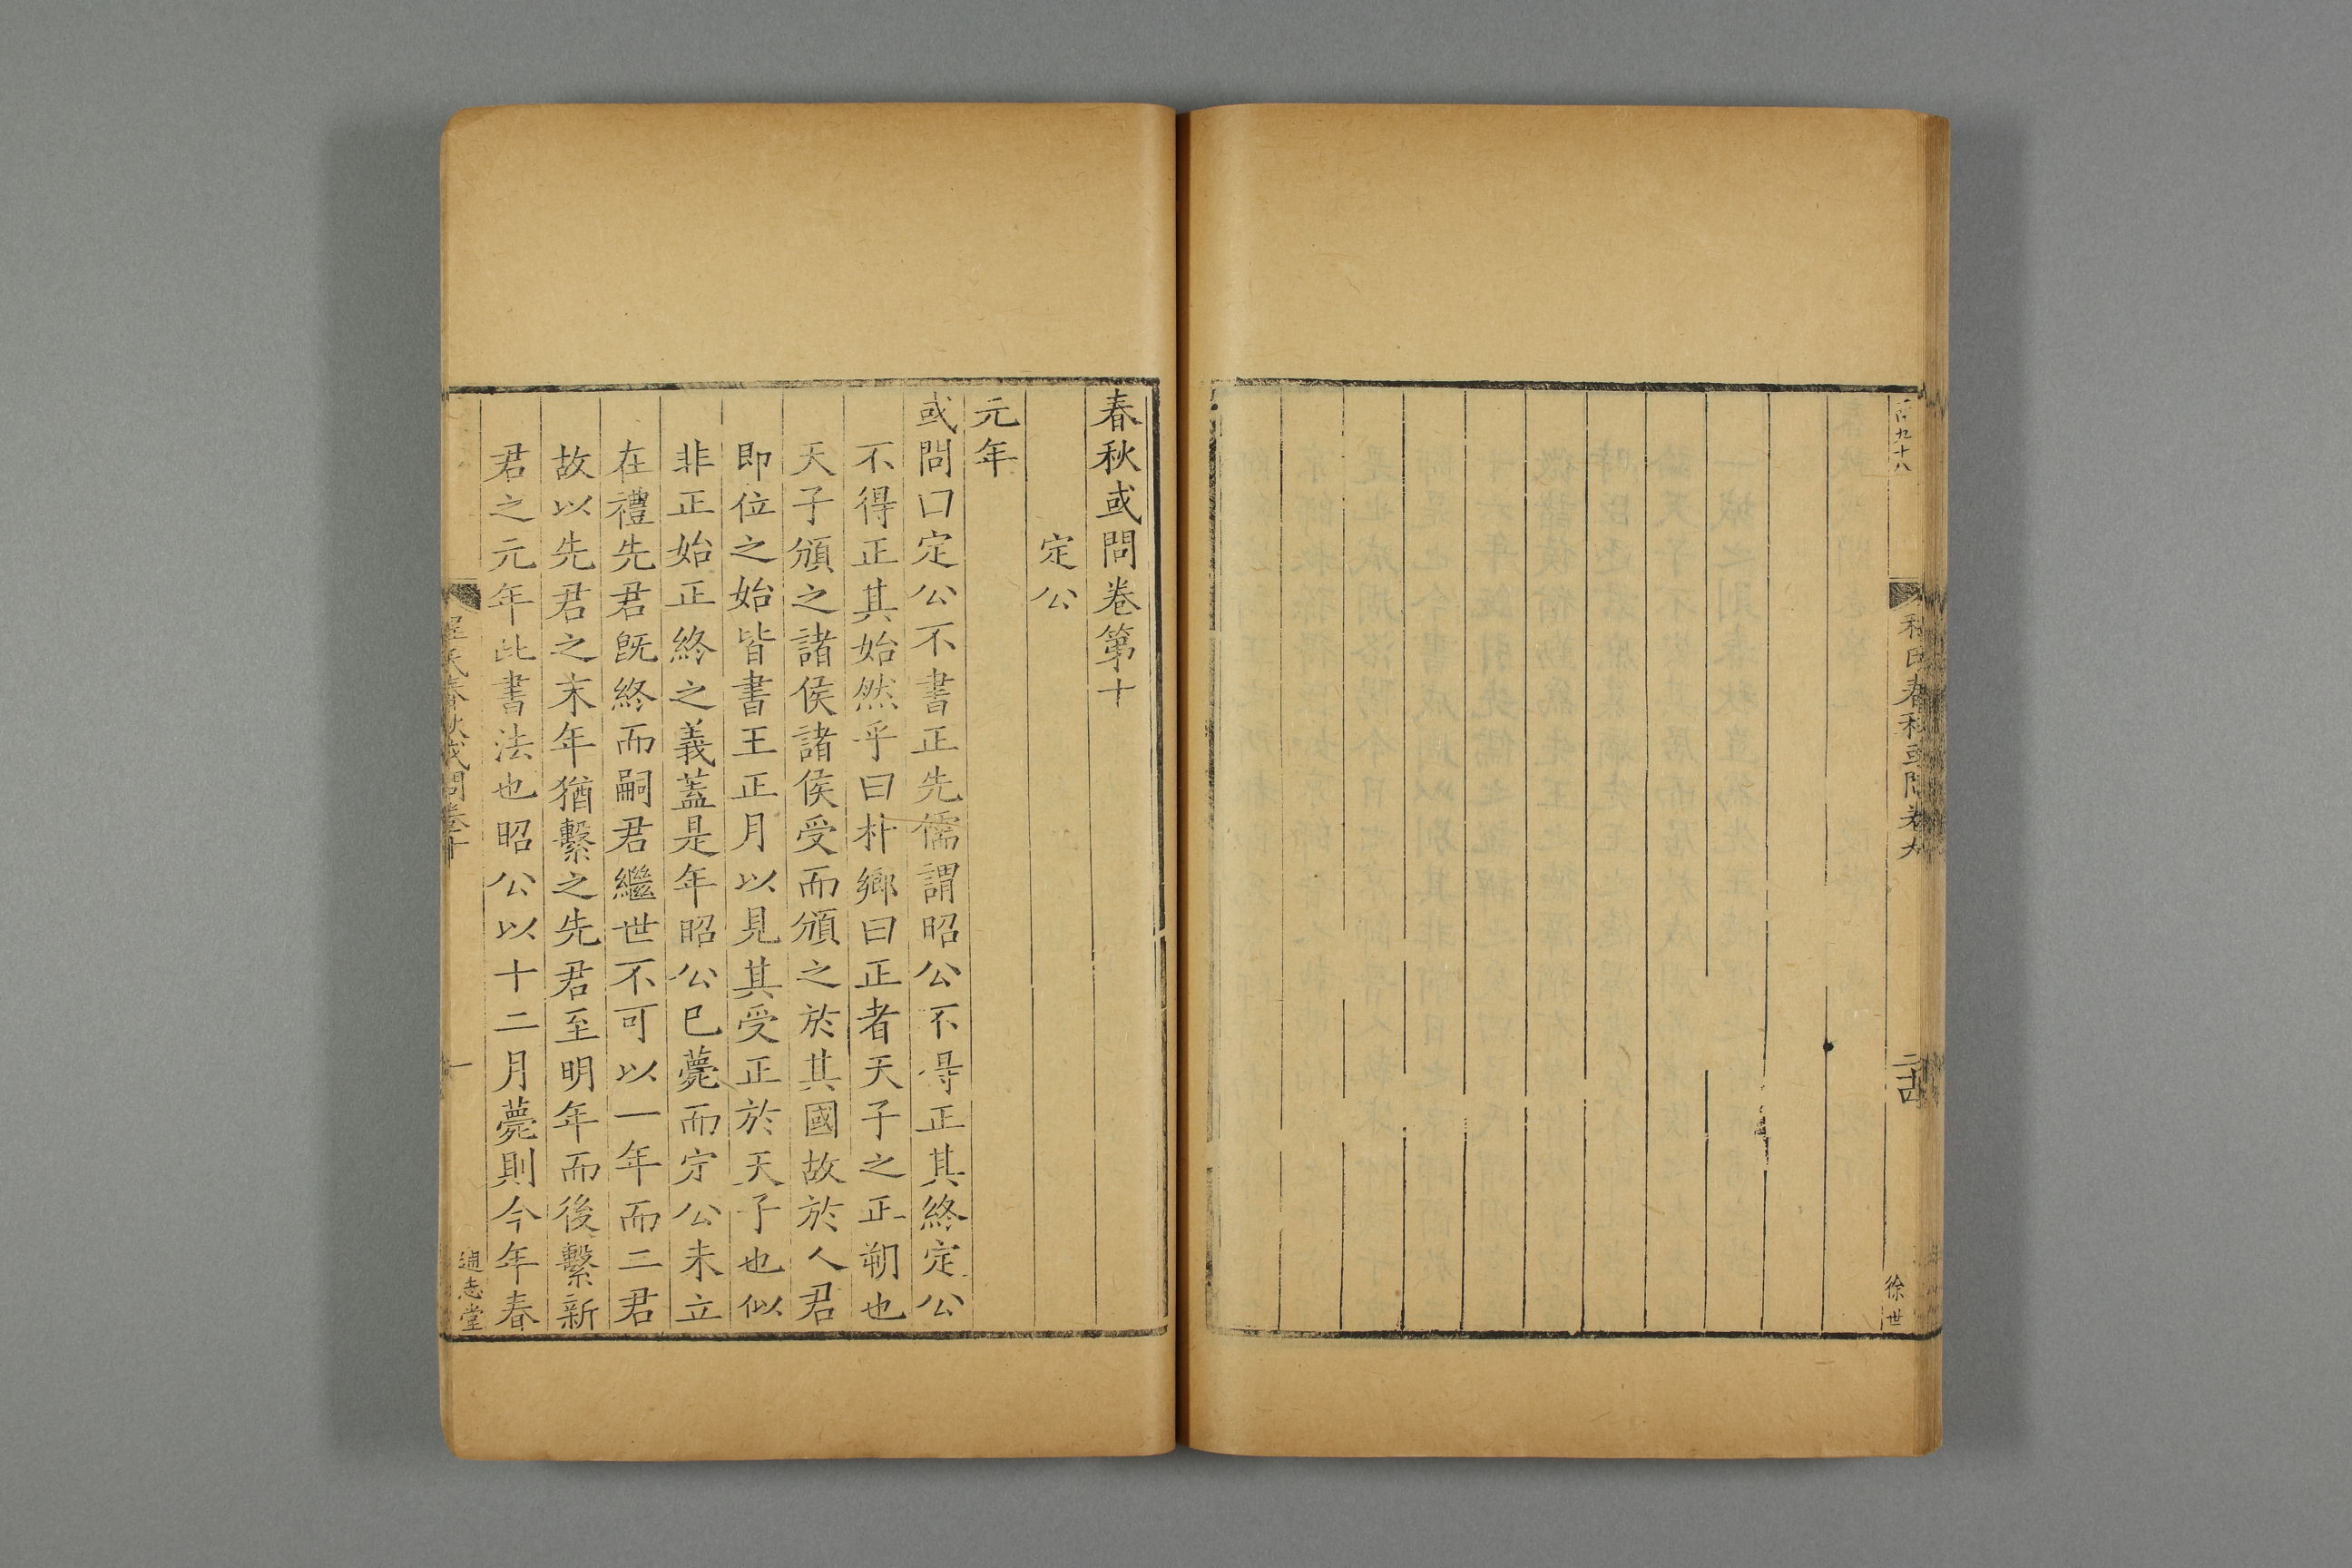 百九十八
程氏春秋或問卷九
二十四
徐世
春秋或問卷第十
定公
元年
或問曰定公不書正先儒謂昭公不得正其終定公
不得正其始然乎曰朴鄉曰正者天子之正朔也
天子頒之諸侯諸侯受而頒之於其國故於人君
即位之始皆書王正月以見其受正於天子也似
非正始正終之義蓋是年昭公已薨而定公未立
在禮先君旣終而嗣君繼世不可以一年而二君
故以先君之末年猶繫之先君至明年而後繫新
君之元年此書法也昭公以十二月薨則今年春
程氏春秋或問卷十
一
通志堂